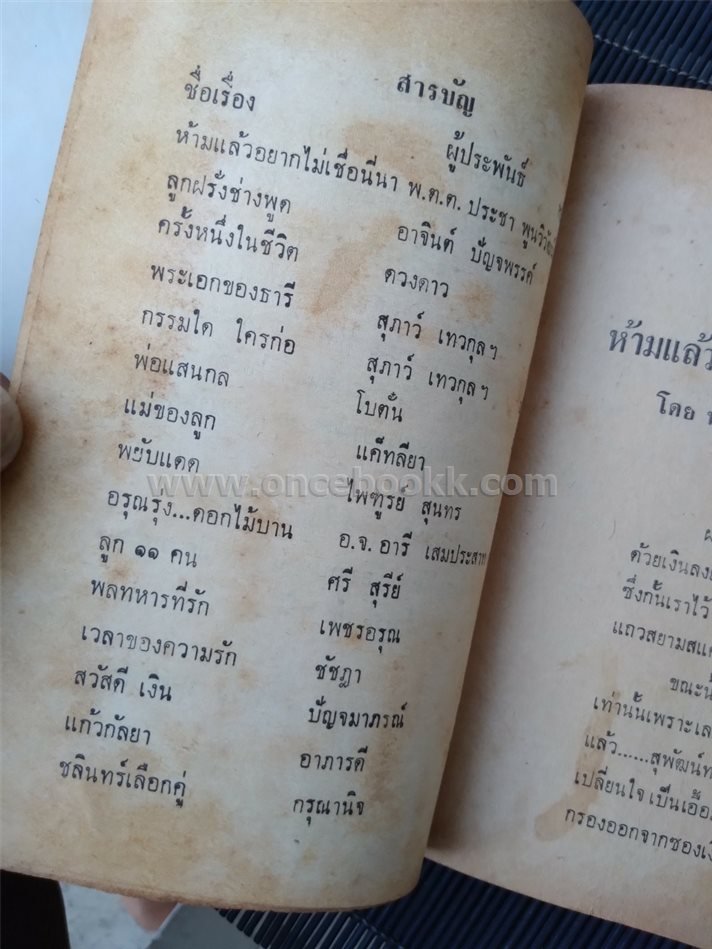 สารบัญ
ชื่อเรื่อง ผู้ประพันธ์
ห้ามแล้วอยากไม่เชื่อนี่นา พ.ต.ต. ประชา
ลูกฝรั่งช่างพูด อาจินต์ ปัญจพรรค์
ครั้งหนึ่งในชีวิต ดวงดาว
พระเอกของธารี สุภาว์ เทวกุลฯ
กรรมใด ใครก่อ สุภาว์ เทวกุลฯ
พ่อแสนกล โบตั๋น
แม่ของลูก แค๊ทลียา
พยับแดด ไพฑูรย์ สุนทร
อรุณรุ่ง...ดอกไม้บาน อ.จ. อารี
ลูก ๑๑ คน ศรี สุรีย์
พลทหารที่รัก เพชรอรุณ
เวลาของความรัก ชัชฎา
สวัสดี เงิน ปัญจมาภรณ์
แก้วกัลยา อาภารดี
ชลินทร์เลือกคู่ กรุณานิจ
www.oncebookk.com
ห้ามแล้ว
โดย
ด้วยเงินลง
ซึ่งกั้นเราไว้
แถวสยามสแค
ขณะนั้
เท่านั้นเพราะเล
แล้ว......สุพัฒน์ท
เปลี่ยนใจ เป็นเอื้อ
กรองออกจากซองเงิ